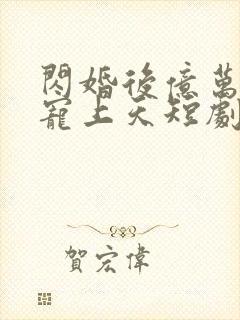 閃婚後億萬
寵上天短劇
賀宏偉